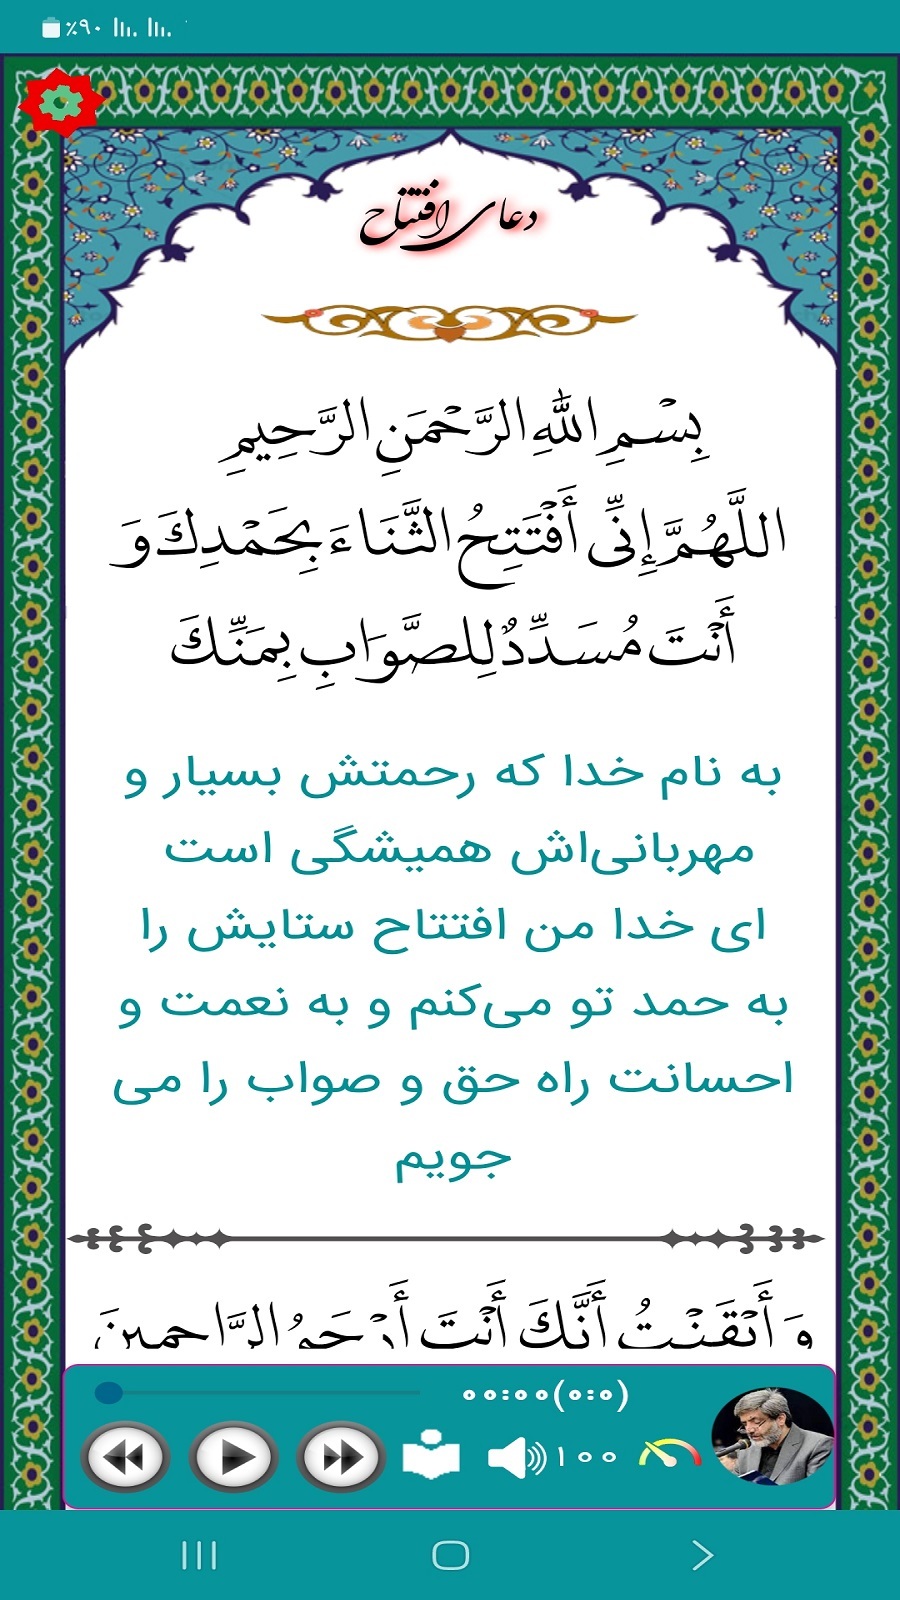 ٪۹۰
دعای افتتاح
بِسْمِ اللَّهِ الرَّحْمَنِ الرَّحِيمِ
اللَّهُمَّ إِنِّي أَفْتَتِحُ الثَّنَاءَ بِحَمْدِكَ وَ
أَنْتَ مُسَدِّدٌ لِلصَّوَابِ بِمَنِّكَ
به نام خدا که رحمتش بسیار و
مهربانی‌اش همیشگی است
ای خدا من افتتاح ستایش را
به حمد تو می‌کنم و به نعمت و
احسانت راه حق و صواب را می
جویم
وَ أَيْقَنْتُ أَنَّكَ أَنْتَ أَرْحَمُ الرَّاحِمِينَ
۰۰:۰۰(۰:۰)
۱۰۰